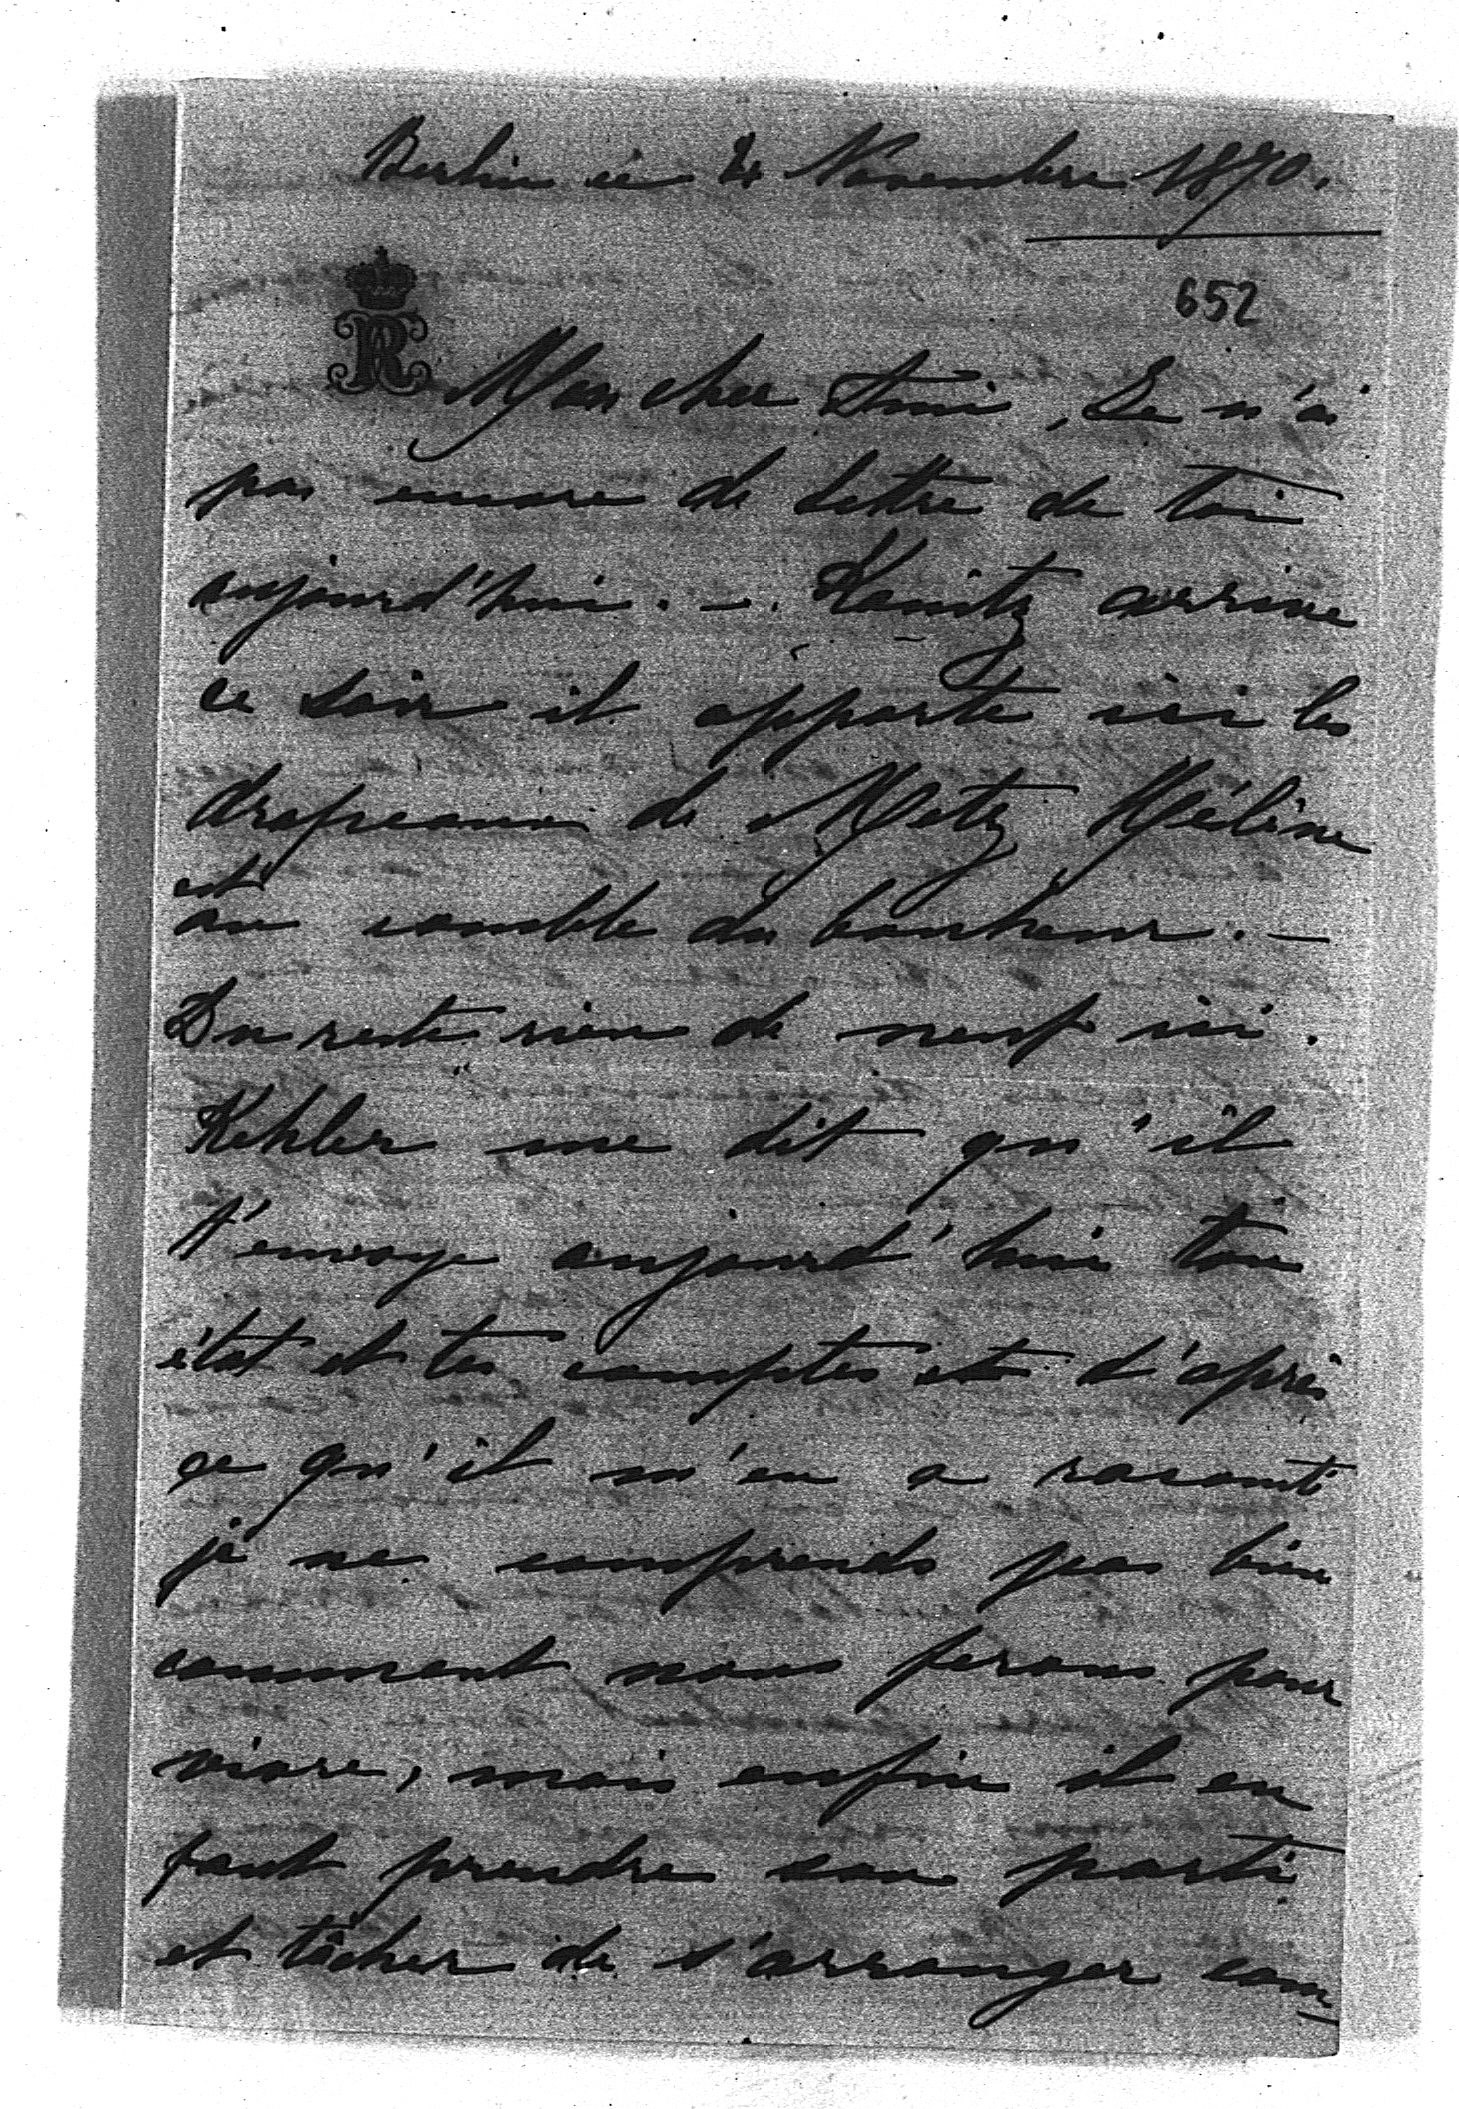 Berlin ce 4 Novembre 1870.
652
Mon cher Ami, Je n'ai
pas encore de lettre de toi
aujourd'hui. –. Kanitz arrive
ce soir il apporte ici les
drapeaux de Metz Hélène
est
au comble du bonheur. –
Du reste rien de neuf ici.
Kehler me dit qu'il
t'envoye aujourd'hui ton
état et tes comptes et d'après
ce qu'il m'en a raconté
je ne comprends pas bien
comment nous ferons pour
vivre, mais enfin il en
faut prendre son parti
et tâcher de s'arranger com-